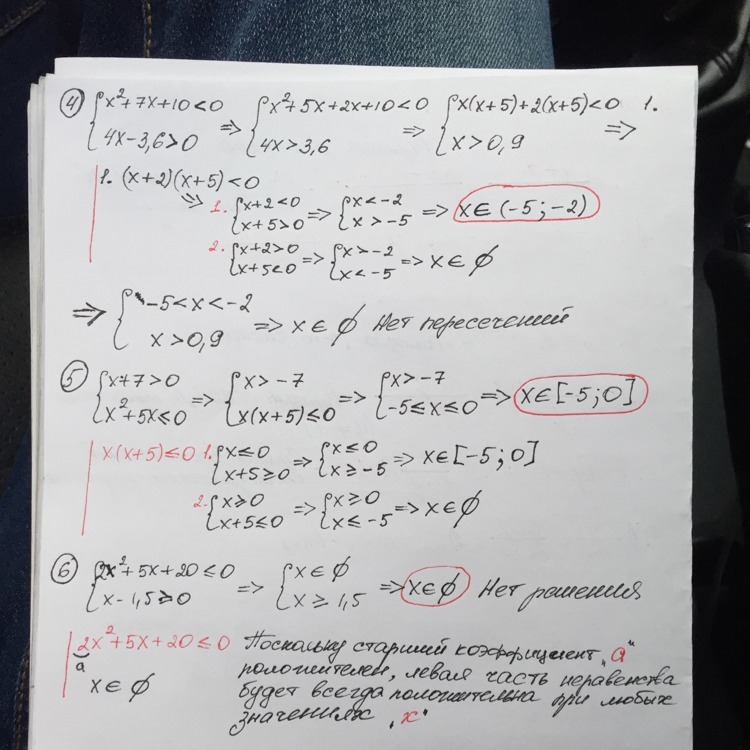 ④ {x²+7x+10<0 {x²+5x+2x+10<0 {x(x+5)+2(x+5)<0 1.
{4x-3,6>0 => {4x>3,6 => {x>0,9 =>
1. (x+2)(x+5)<0
=> 1. {x+2<0 {x<-2
{x+5>0 => {x>-5 => x∈(-5;-2)
2. {x+2>0 {x>-2
{x+5<0 => {x<-5 => x∈∅
=> {-5<x<-2
{x>0,9 => x∈∅ Нет пересечений
⑤ {x+7>0 {x>-7 {x>-7
{x²+5x≤0 => {x(x+5)≤0 => {-5≤x≤0 => x∈[-5;0]
x(x+5)≤0 1. {x≤0 {x≤0
{x+5≥0 => {x≥-5 => x∈[-5;0]
2. {x≥0 {x≥0
{x+5≤0 => {x≤-5 => x∈∅
⑥ {2x²+5x+20≤0 {x∈∅
{x-1,5≥0 => {x≥1,5 => x∈∅ Нет решения
2x²+5x+20≤0 Поскольку старший коэффициент „а"
a положителен, левая часть неравенства
x∈∅ будет всегда положительна при любых
значениях „x"